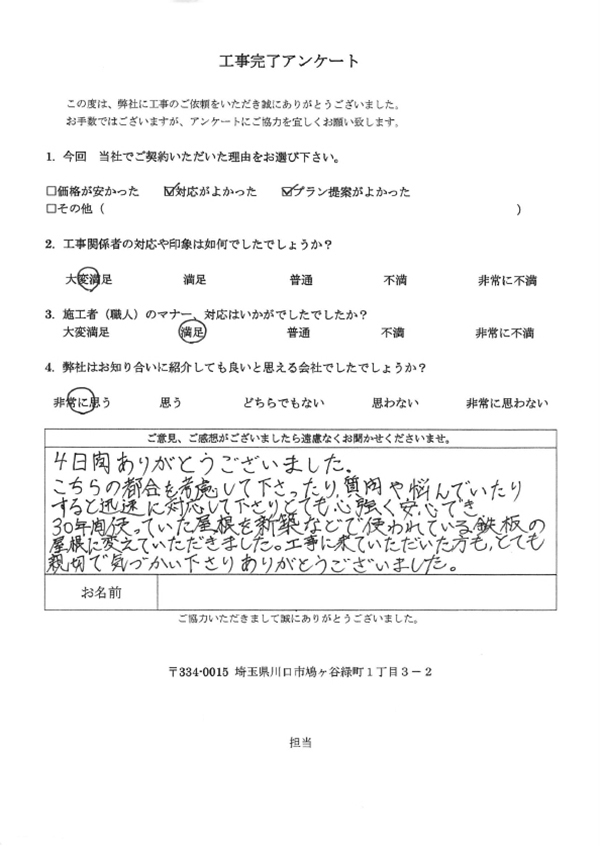 工事完了アンケート
この度は、弊社に工事のご依頼をいただき誠にありがとうございました。
お手数ではございますが、アンケートにご協力を宜しくお願い致します。
1. 今回　当社でご契約いただいた理由をお選び下さい。
□価格が安かった　☑対応がよかった　☑プラン提案がよかった
□その他（　　　）
2. 工事関係者の対応や印象は如何でしたでしょうか？
大変満足　満足　普通　不満　非常に不満
3. 施工者（職人）のマナー、対応はいかがでしたでしたか？
大変満足　満足　普通　不満　非常に不満
4. 弊社はお知り合いに紹介しても良いと思える会社でしたでしょうか？
非常に思う　思う　どちらでもない　思わない　非常に思わない
ご意見、ご感想がございましたら遠慮なくお聞かせくださいませ。
4日間ありがとうございました。
こちらの都合を考慮して下さったり、質問や悩んでいたり
すると迅速に対応して下さりとても心強く安心でき
30年間使っていた屋根を新築などで使われている鉄板の
屋根に変えていただきました。工事に来ていただいた方も、とても
親切で気づかい下さりありがとうございました。
お名前
ご協力いただきまして誠にありがとうございました。
〒334-0015 埼玉県川口市鳩ヶ谷緑町１丁目３－２
担当